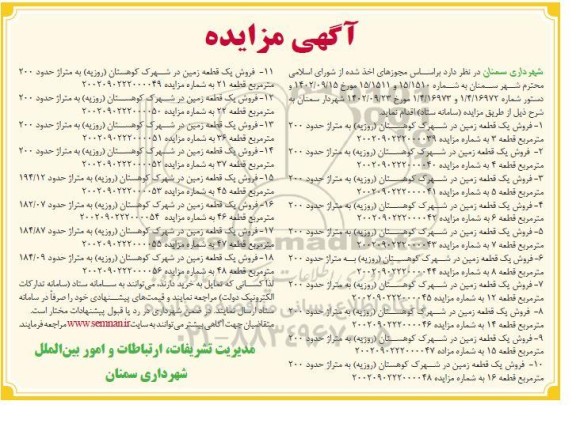 آگهی مزایده
شهرداری سمنان در نظر دارد براساس مجوزهای اخذ شده از شورای اسلامی
محترم شهر سمنان به شماره ۱۵/۱۵۱۰ و ۱۵/۱۵۱۱ مورخ ۱۴۰۲/۰۹/۱۵ و
دستور شماره ۱/۴/۱۶۹۷۲ و ۱/۴/۱۶۹۷۳ مورخ ۱۴۰۲/۰۹/۲۳ شهردار سمنان به
شرح ذیل از طریق مزایده (سامانه ستاد) اقدام نماید.
۱- فروش یک قطعه زمین در شهرک کوهستان (روزیه) به متراژ حدود ۲۰۰
مترمربع قطعه ۳ به شماره مزایده ۲۰۰۲۰۹۰۲۲۲۰۰۰۰۳۹
۲- فروش یک قطعه زمین در شهرک کوهستان (روزیه) به متراژ حدود ۲۰۰
مترمربع قطعه ۴ به شماره مزایده ۲۰۰۲۰۹۰۲۲۲۰۰۰۰۴۰
۳- فروش یک قطعه زمین در شهرک کوهستان (روزیه) به متراژ حدود ۲۰۰
مترمربع قطعه ۵ به شماره مزایده ۲۰۰۲۰۹۰۲۲۲۰۰۰۰۴۱
۴- فروش یک قطعه زمین در شهرک کوهستان (روزیه) به متراژ حدود ۲۰۰
مترمربع قطعه ۶ به شماره مزایده ۲۰۰۲۰۹۰۲۲۲۰۰۰۰۴۲
۵- فروش یک قطعه زمین در شهرک کوهستان (روزیه) به متراژ حدود ۲۰۰
مترمربع قطعه ۷ به شماره مزایده ۲۰۰۲۰۹۰۲۲۲۰۰۰۰۴۳
۶- فروش یک قطعه زمین در شهرک کوهستان (روزیه) به متراژ حدود ۲۰۰
مترمربع قطعه ۸ به شماره مزایده ۲۰۰۲۰۹۰۲۲۲۰۰۰۰۴۴
۷- فروش یک قطعه زمین در شهرک کوهستان (روزیه) به متراژ حدود ۲۰۰
مترمربع قطعه ۱۲ به شماره مزایده ۲۰۰۲۰۹۰۲۲۲۰۰۰۰۴۵
۸- فروش یک قطعه زمین در شهرک کوهستان (روزیه) به متراژ حدود ۲۰۰
مترمربع قطعه ۱۴ به شماره مزایده ۲۰۰۲۰۹۰۲۲۲۰۰۰۰۴۶
۹- فروش یک قطعه زمین در شهرک کوهستان (روزیه) به متراژ حدود ۲۰۰
مترمربع قطعه ۱۵ به شماره مزاده ۲۰۰۲۰۹۰۲۲۲۰۰۰۰۴۷
۱۰- فروش یک قطعه زمین در شهرک کوهستان (روزیه) به متراژ حدود ۲۰۰
مترمربع قطعه ۱۶ به شماره مزایده ۲۰۰۲۰۹۰۲۲۲۰۰۰۰۴۸
۱۱- فروش یک قطعه زمین در شهرک کوهستان (روزیه) به متراژ حدود ۲۰۰
مترمربع قطعه ۲۱ به شماره مزایده ۲۰۰۲۰۹۰۲۲۲۰۰۰۰۴۹
۱۲- فروش یک قطعه زمین در شهرک کوهستان (روزیه) به متراژ حدود ۲۰۰
مترمربع قطعه ۲۲ به شماره مزایده ۲۰۰۲۰۹۰۲۲۲۰۰۰۰۵۰
۱۳- فروش یک قطعه زمین در شهرک کوهستان (روزیه) به متراژ حدود ۲۰۰
مترمربع قطعه ۳۶ به شماره مزایده ۲۰۰۲۰۹۰۲۲۲۰۰۰۰۵۱
۱۴- فروش یک قطعه زمین در شهرک کوهستان (روزیه) به متراژ حدود ۲۰۰
مترمربع قطعه ۳۷ به شماره مزایده ۲۰۰۲۰۹۰۲۲۲۰۰۰۰۵۲
۱۵- فروش یک قطعه زمین در شهرک کوهستان (روزیه) به متراژ ۱۹۴/۱۲
مترمربع قطعه ۴۵ به شماره مزایده ۲۰۰۲۰۹۰۲۲۲۰۰۰۰۵۳
۱۶- فروش یک قطعه زمین در شهرک کوهستان (روزیه) به متراژ ۱۸۲/۰۷
مترمربع قطعه ۴۶ به شماره مزایده ۲۰۰۲۰۹۰۲۲۲۰۰۰۰۵۴
۱۷- فروش یک قطعه زمین در شهرک کوهستان (روزیه) به متراژ ۱۸۴/۸۷
مترمربع قطعه ۴۷ به شماره مزایده ۲۰۰۲۰۹۰۲۲۲۰۰۰۰۵۵
۱۸- فروش یک قطعه زمین در شهرک کوهستان (روزیه) به متراژ ۱۸۴/۰۹
مترمربع قطعه ۴۸ به شماره مزایده ۲۰۰۲۰۹۰۲۲۲۰۰۰۰۵۶
لذا کسانی که تمایل به خرید دارند، می‌توانند به سامانه ستاد (سامانه تدارکات
الکترونیک دولت) مراجعه نمایند و قیمت‌های پیشنهادی خود را صرفاً در سامانه
ستاد ارسال نمایند. در ضمن شهرداری در رد یا قبول پیشنهادات مختار است.
متقاضیان جهت آگهی بیشتر می‌توانند به سایت www.semnan.ir مراجعه فرمایند.
مدیریت تشریفات، ارتباطات و امور بین‌الملل
شهرداری سمنان